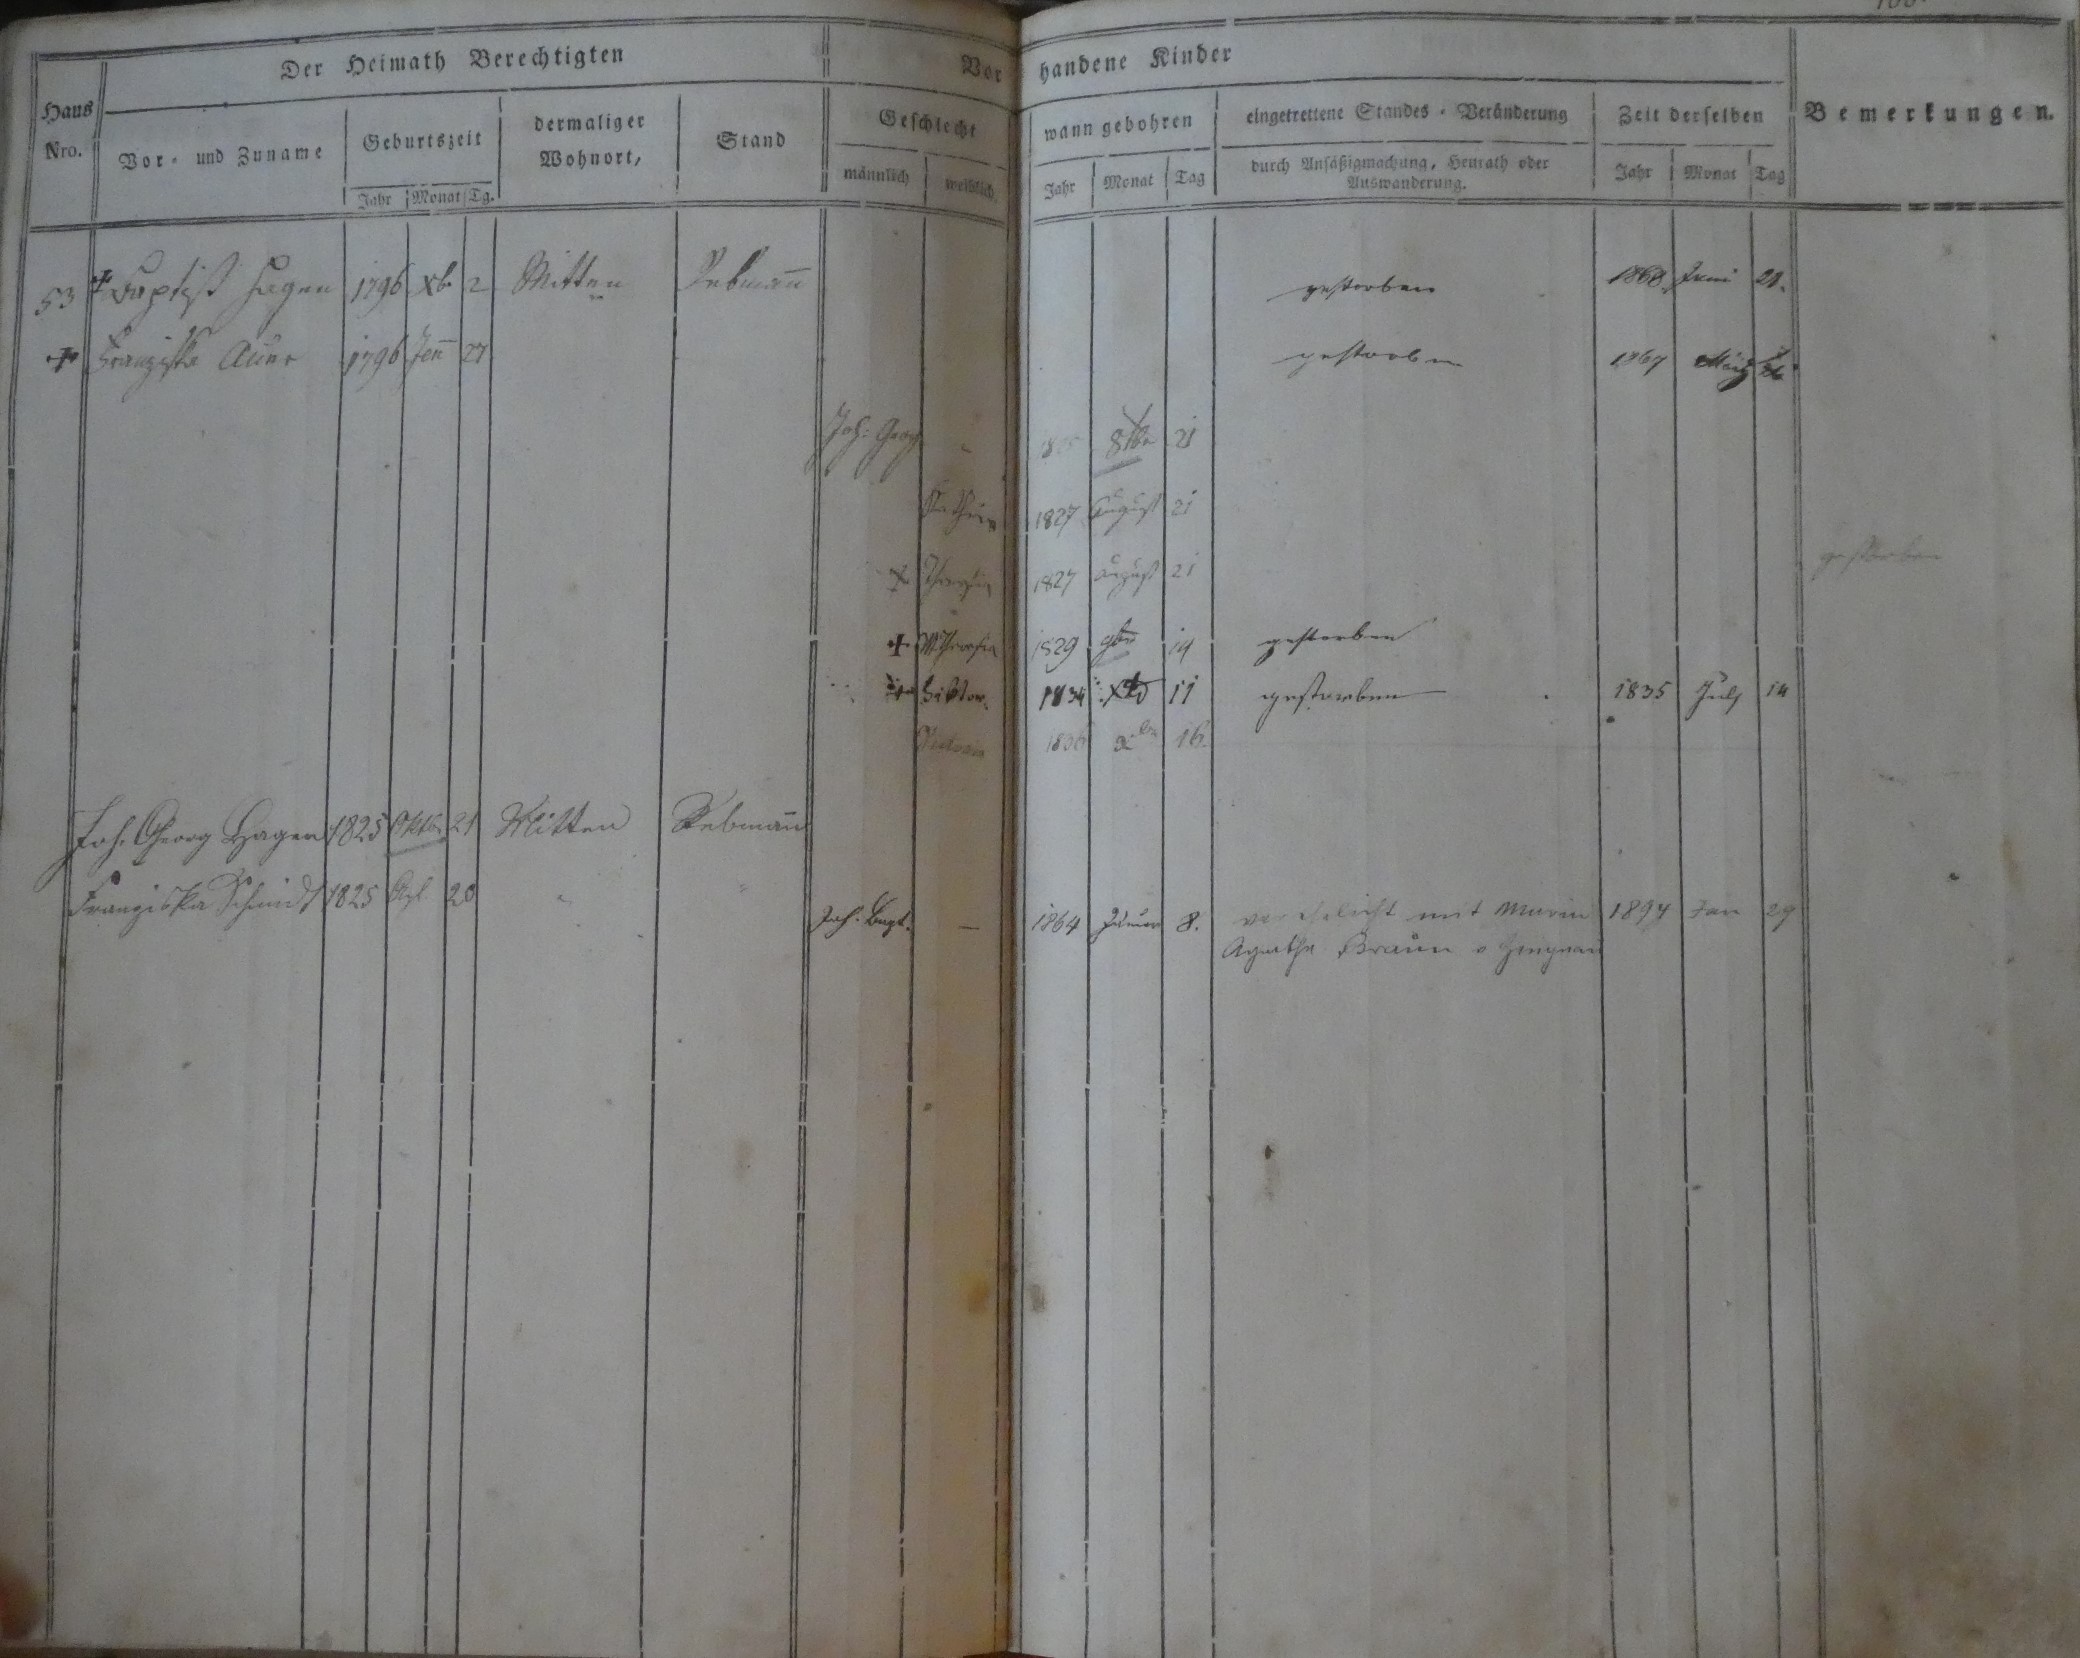 Der Heimath Berechtigten
Vorhandene Kinder
Haus Nro.
Vor- und Zuname
Geburtszeit
Jahr Monat Tg.
dermaliger Wohnort,
Stand
Geschlecht
männlich weiblich
wann gebohren
Jahr Monat Tag
eingetrettene Standes-Veränderung
durch Ansäßigmachung, Heurath oder
Auswanderung.
Zeit derselben
Jahr Monat Tag
Bemerkungen.
53 + Baptist Hagen 1796 Xb. 2 Mitten Rebmann gestorben 1868 Juni 21.
+ Franziska Auer 1796 Jen 27 gestorben 1867 März
Joh: Georg 8tbr 21
1827 August 21
+ 1827 August 21 gestorben
+ M. Theresia 1829 9br 19 gestorben
+ Viktor. 1834 Xb 11 gestorben 1835 July 14
Viktoria 1836 Xbr 16.
Joh. Georg Hagen 1825 Oktbr 21 Mitten Rebmann
Franziska Schmidt 1825 Apl 20 " "
Joh. Bapt. — 1864 Januar 8. verehelicht mit Maria 1894 Jan 29
Agatha Braun v